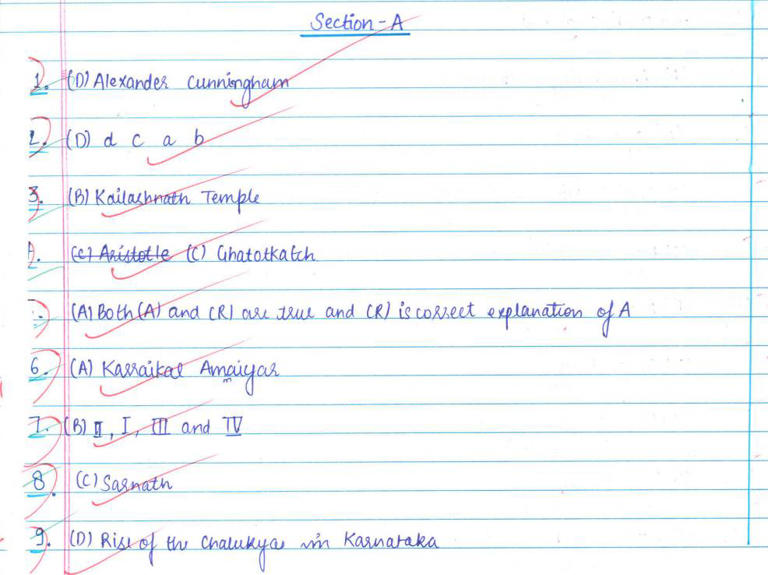 Section - A
1. (D) Alexander Cunningham
2. (D) d c a b
3. (B) Kailashnath Temple
4. (C) Aristotle (C) Ghatotkatch
(A) Both (A) and (R) are true and (R) is correct explanation of A
6. (A) Karraikal Amaiyar
7. (B) II, I, III and IV
8. (C) Sarnath
9. (D) Rise of the Chalukya in Karnataka